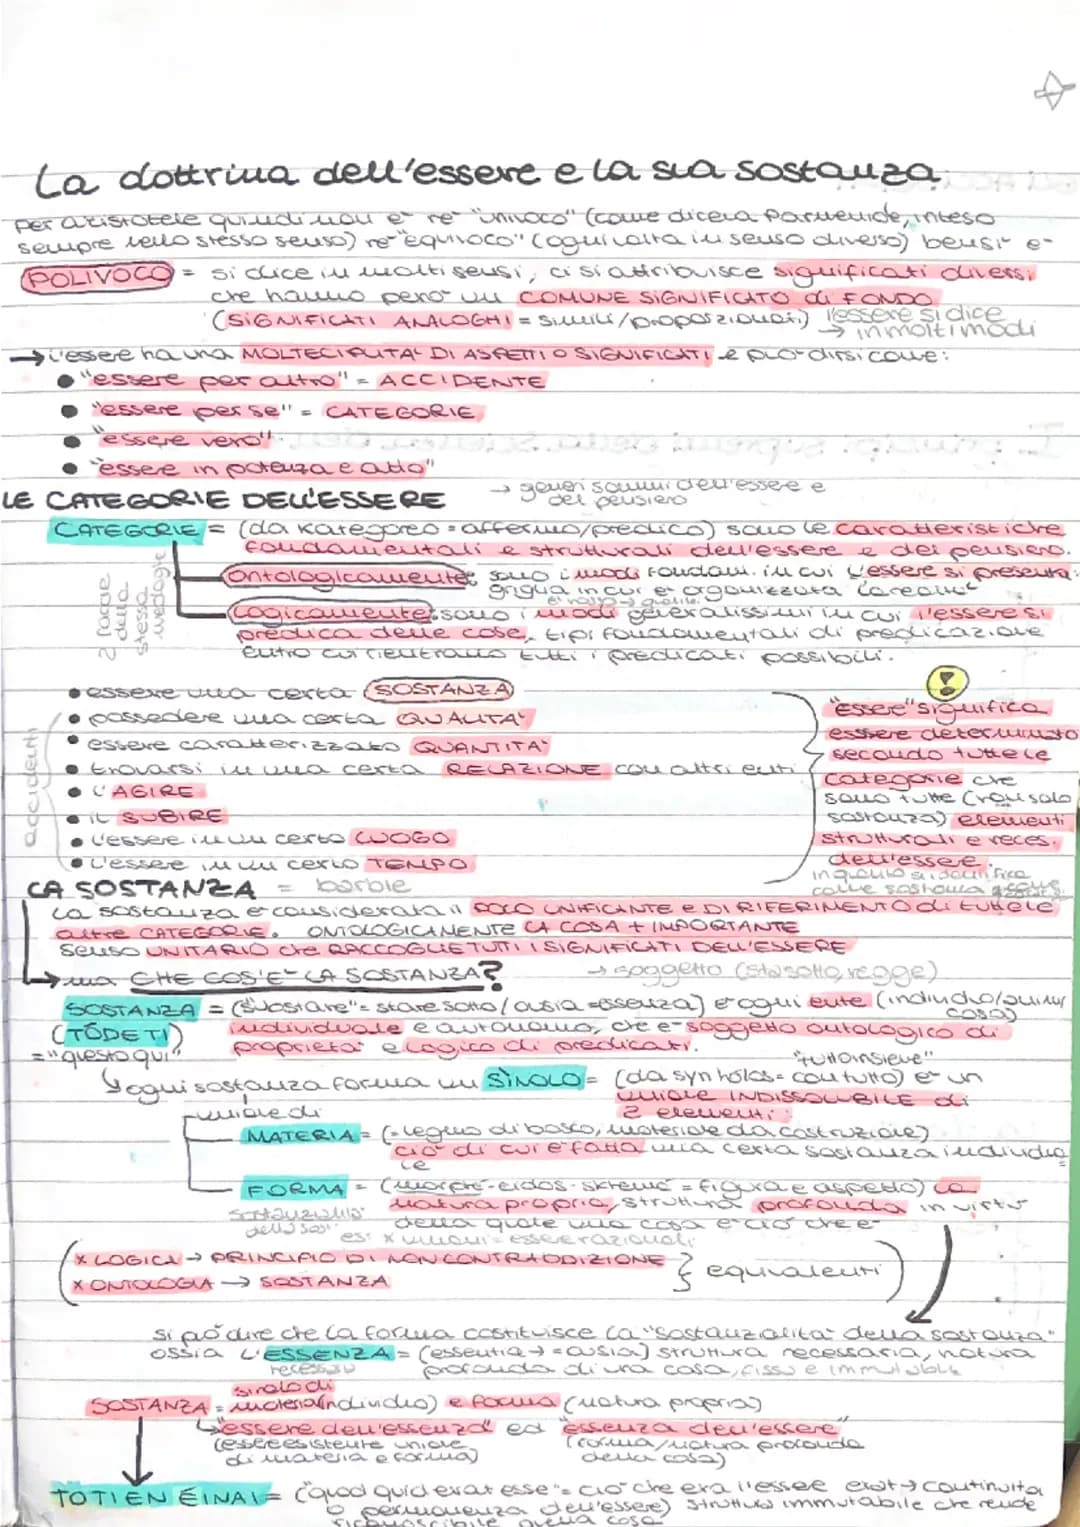 La dottrina dell'essere e la sua sostanza
per aristotele quindi non è nè "univoco" (come diceva Parmenide, inteso
sempre nello stesso senso) nè "equivoco" (ogni volta in senso diverso) bensì è
POLIVOCO = si dice in molti sensi, ci si attribuisce significati diversi
che hanno però un COMUNE SIGNIFICATO di FONDO
(SIGNIFICATI ANALOGHI = simili/proporzionati) l'essere si dice
→ in molti modi
→ l'essere ha una MOLTECIPLITA' DI ASPETTI O SIGNIFICATI e può dirsi come:
• "essere per altro" = ACCIDENTE
• "essere per se" = CATEGORIE
• "essere vero"
• "essere in potenza e atto"
LE CATEGORIE DELL'ESSERE → generi sommi dell'essere e
del pensiero
CATEGORIE = (da kategoreo = affermo/predico) sono le caratteristiche
fondamentali e strutturali dell'essere e del pensiero.
2 facce della stessa medaglia
Ontologicamente: sono i modi fondam. in cui l'essere si presenta:
griglia in cui è organizzata la realtà
Logicamente: sono i modi generalissimi in cui l'essere si
predica delle cose, tipi fondamentali di predicazione
entro cui rientrano tutti i predicati possibili.
• essere una certa SOSTANZA
• possedere una certa QUALITA'
• essere caratterizzato QUANTITA'
• trovarsi in una certa RELAZIONE con altri enti
• L'AGIRE
• IL SUBIRE
• l'essere in un certo LUOGO
• l'essere in un certo TEMPO
accidenti
!
"Essere" significa
essere determinato
secondo tutte le
categorie che
sono tutte (non solo
sostanza) elementi
strutturali e neces.
dell'essere.
in quanto si identifica
come sostanza
LA SOSTANZA = barbie
La sostanza è considerata il POLO UNIFICANTE e DI RIFERIMENTO di tutte le
altre CATEGORIE. ONTOLOGICAMENTE LA COSA + IMPORTANTE
senso UNITARIO che RACCOGLIE TUTTI I SIGNIFICATI DELL'ESSERE
→ ma CHE COS'E' LA SOSTANZA? → soggetto (sta sotto, regge)
SOSTANZA = ("substare" = stare sotto/ousia = essenza) è ogni ente
(TÓDE TI) individuale e autonomo, che è soggetto ontologico di
= "questo qui" proprietà e logico di predicati.
"tutto insieme"
ogni sostanza forma un SINOLO = (da syn holos = con tutto) è un
unione INDISSOLUBILE di
2 elementi:
unione di
MATERIA = (= legno di bosco, materiale da costruzione)
ciò di cui è fatta una certa sostanza individua
le
FORMA = (morphé - eidos - skhema = figura e aspetto) la
natura propria, struttura profonda in virtù
della quale una cosa è ciò che è
sostanzialità della sos.
es: x umani = essere razionali
x LOGICA → PRINCIPIO DI NON CONTRADDIZIONE
x ONTOLOGIA → SOSTANZA
} equivalenti
si può dire che la forma costituisce la "sostanzialità della sostanza"
ossia L'ESSENZA = (essentia → = ousia) struttura necessaria, natura
profonda di una cosa, fissa e immutabile
sinolo di
SOSTANZA = materia (individuo) e forma (natura propria)
"essere dell'essenza" ed "essenza dell'essere"
(essere esistente unione (forma/natura profonda
di materia e forma) della cosa)
TO TI EN ÊINAI = ("quod quid erat esse" = ciò che era l'essere → continuità
o permanenza dell'essere) struttura immutabile che rende
riconoscibile quella cosa